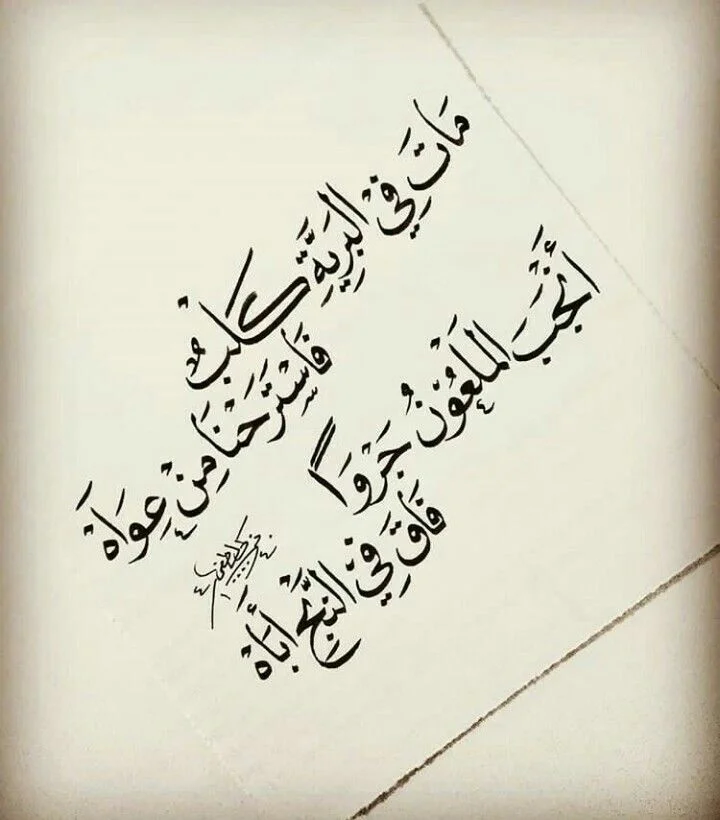 مَاتَ فِيْ البَرِيَّةِ كَلْبٌ
فَاسْتَرَحْنَا مِنْ عِوَاهْ
أَنْجَبَ المَلْعُوْنُ جَرْوَاً
فَاقَ فِيْ النَّبْحِ أَبَاهْ